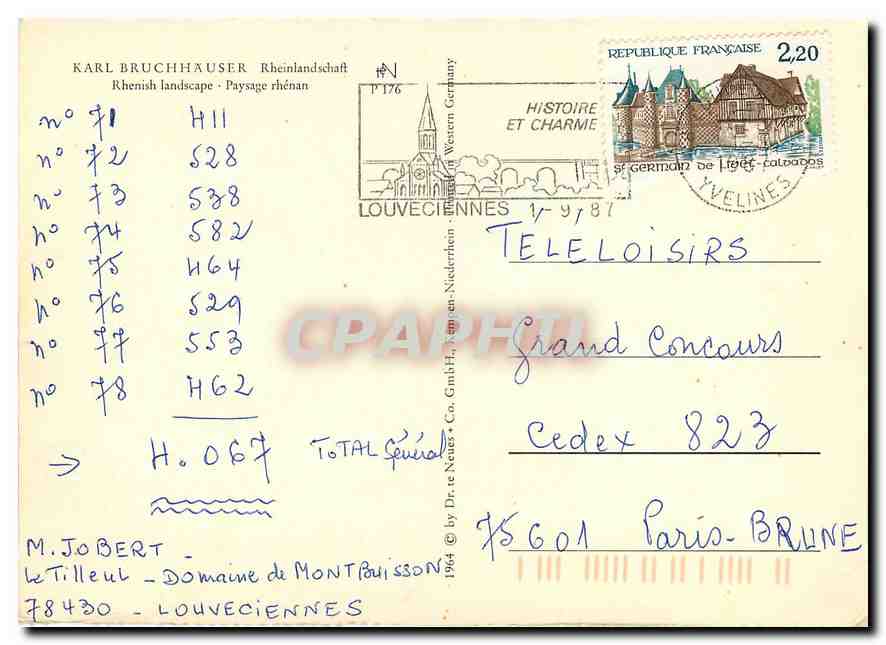 KARL BRUCHHÄUSER Rheinlandschaft
Rhenish landscape · Paysage rhénan
P 176
n° 71 411
n° 72 528
n° 73 538
n° 74 582
n° 75 464
n° 76 529
n° 77 553
n° 78 462
→ 4.067 TOTAL Général
M. JOBERT -
Le Tilleul - Domaine de MONTBUISSON
78430 - LOUVECIENNES
1964 © by Dr. te Neues + Co. GmbH., Kempen-Niederrhein · Printed in Western Germany
HISTOIRE
ET CHARME
LOUVECIENNES 1-9-87
YVELINES
REPUBLIQUE FRANÇAISE 2,20
St GERMAIN DE LIVET-CALVADOS
TELELOISIRS
Grand Concours
Cedex 823
75601 Paris-BRUNE
CPAPHIL